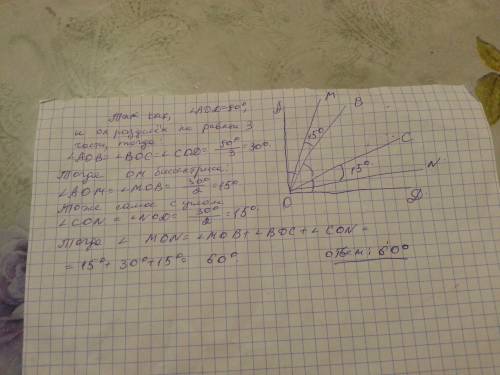 Так как, ∠AOD=90°,
и он разделён на равные 3
части, тогда
∠AOB=∠BOC=∠COD= 90°/3 =30°.
Тогда OM биссектриса
∠AOM=∠MOB= 30°/2 =15°
Тоже самое с углом
∠CON = ∠NOD= 30°/2 =15°.
Тогда ∠ MON=∠MOB+∠BOC+∠CON=
=15°+30°+15°= 60°.
ответ: 60°
A
M
B
15°
C
15°
N
O
D